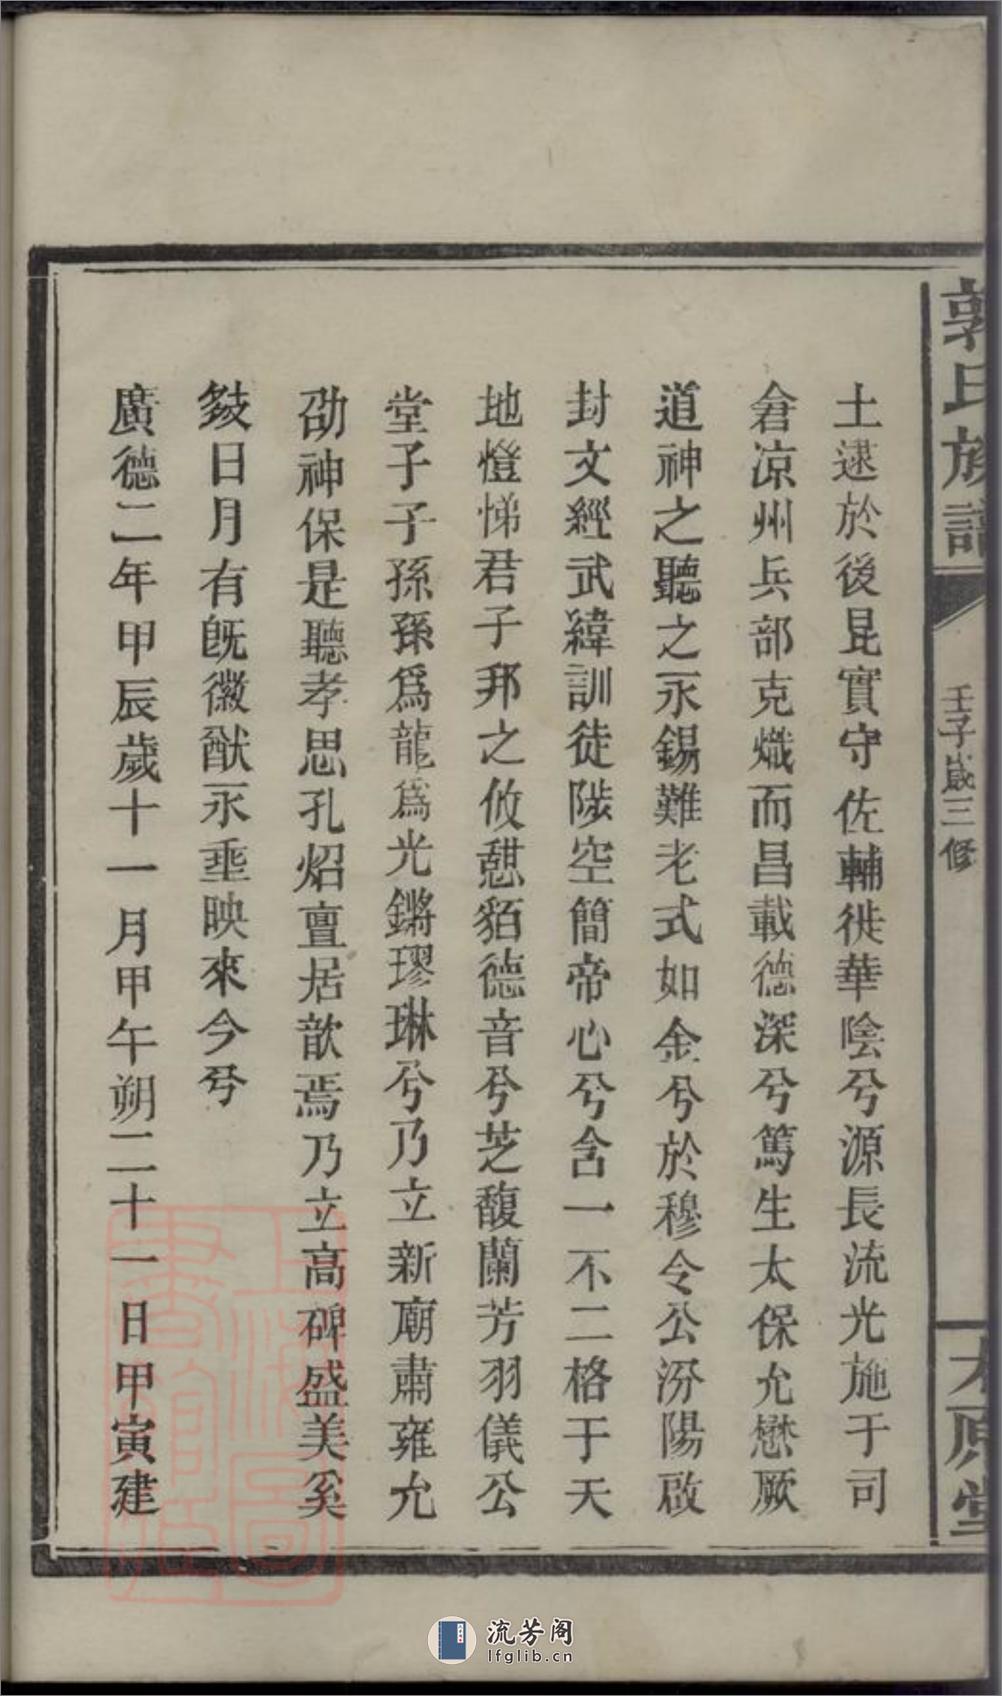 郭氏族譜
壬子歲三修
太原堂
土逮於後昆實守佐輔徙華陰兮源長流光施于司
倉凉州兵部克熾而昌載德深兮篤生太保允懋厥
道神之聽之永錫難老式如金兮於穆令公汾陽啟
封文經武緯訓徒陟空簡帝心兮含一不二格于天
地愷悌君子邦之攸憇貊德音兮芝馥蘭芳羽儀公
堂子子孫孫爲龍爲光鏘璆琳兮乃立新廟肅雍允
劭神保是聽孝思孔炤亶居歆焉乃立高碑盛美奚
錂日月有旣徽猷永垂映來今兮
廣德二年甲辰歲十一月甲午朔二十一日甲寅建
上海圖
書館藏
流芳阁
lfglib.cn